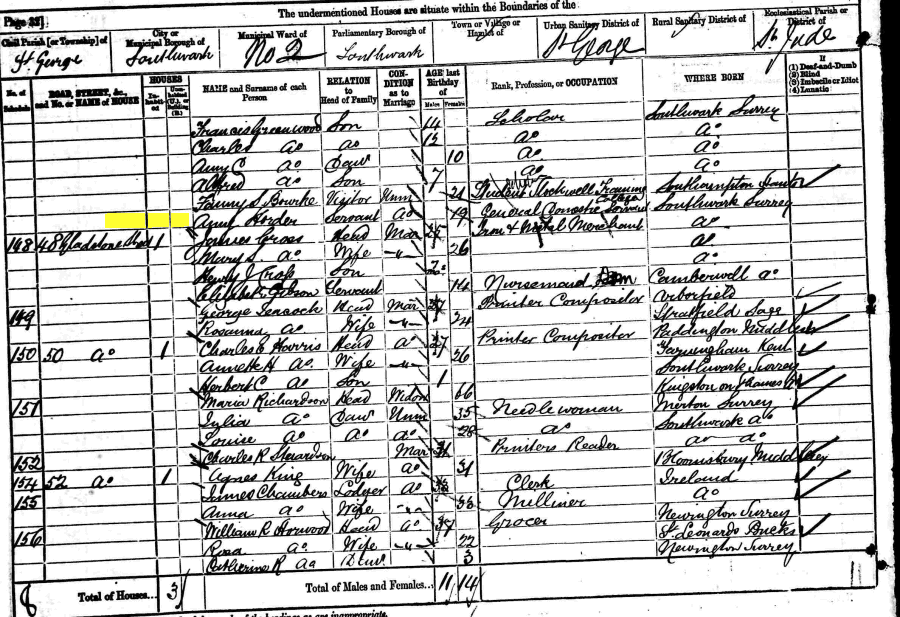 The undermentioned Houses are situate within the Boundaries of the
Page 22]
Civil Parish [or Township] of St George
City or Municipal Borough of Southwark
Municipal Ward of No 2
Parliamentary Borough of Southwark
Town or Village or Hamlet of
Urban Sanitary District of St George
Rural Sanitary District of
Ecclesiastical Parish or District of St Jude
No. of Schedule
ROAD, STREET, &c., and No. or NAME of HOUSE
HOUSES
Inhabited
Uninhabited (U.), or Building (B.)
NAME and Surname of each Person
RELATION to Head of Family
CONDITION as to Marriage
AGE last Birthday of
Males
Females
Rank, Profession, or OCCUPATION
WHERE BORN
If
(1) Deaf-and-Dumb
(2) Blind
(3) Imbecile or Idiot
(4) Lunatic
Francis Greenwood Son 14 Scholar Southwark Surrey
Charles Do Do Do Do
Amy C Do Daur 10 Do Do
Alfred Do Son 7 Do Do
Fanny S Bourke Visitor Unm 21 Student Stockwell Training College Southampton
Servant Do 19 General Domestic Servant Southwark Surrey
148 48 Gladstone Street 1 James Head Mar 25 Iron & Metal Merchant Do
Mary S Do Wife -"- 26 Do
Henry J Son Do
Gibson Servant 14 Nursemaid Camberwell Do
149 George Head Mar Printer Compositor Arborfield
Rosanna Do Wife -"- 24 Stratfield Saye
150 50 Do 1 Charles C Harris Head Do 27 Printer Compositor Paddington Middlesex
Annette H Do Wife -"- 26 Farningham Kent
Herbert C Do Son 1 Southwark Surrey
151 Maria Richardson Head Widow 66 Kingston on Thames
Julia Do Daur Unm 35 Needlewoman Merton Surrey
Louise Do Do Do 28 Do Southwark Do
152 Charles R Mar 31 Printers Reader Do Do
154 52 Do 1 Agnes King Wife Do 31 Middlesex
155 James Chambers Lodger Do Clerk Ireland
Anna Do Wife -"- 33 Milliner Do
156 William R Horwood Head Do 37 Grocer Newington Surrey
Rosa Do Wife -"- 22 St Leonards Bucks
Catherine R Do Daur 3 Newington Surrey
8
Total of Houses... 3
Total of Males and Females... 11 14